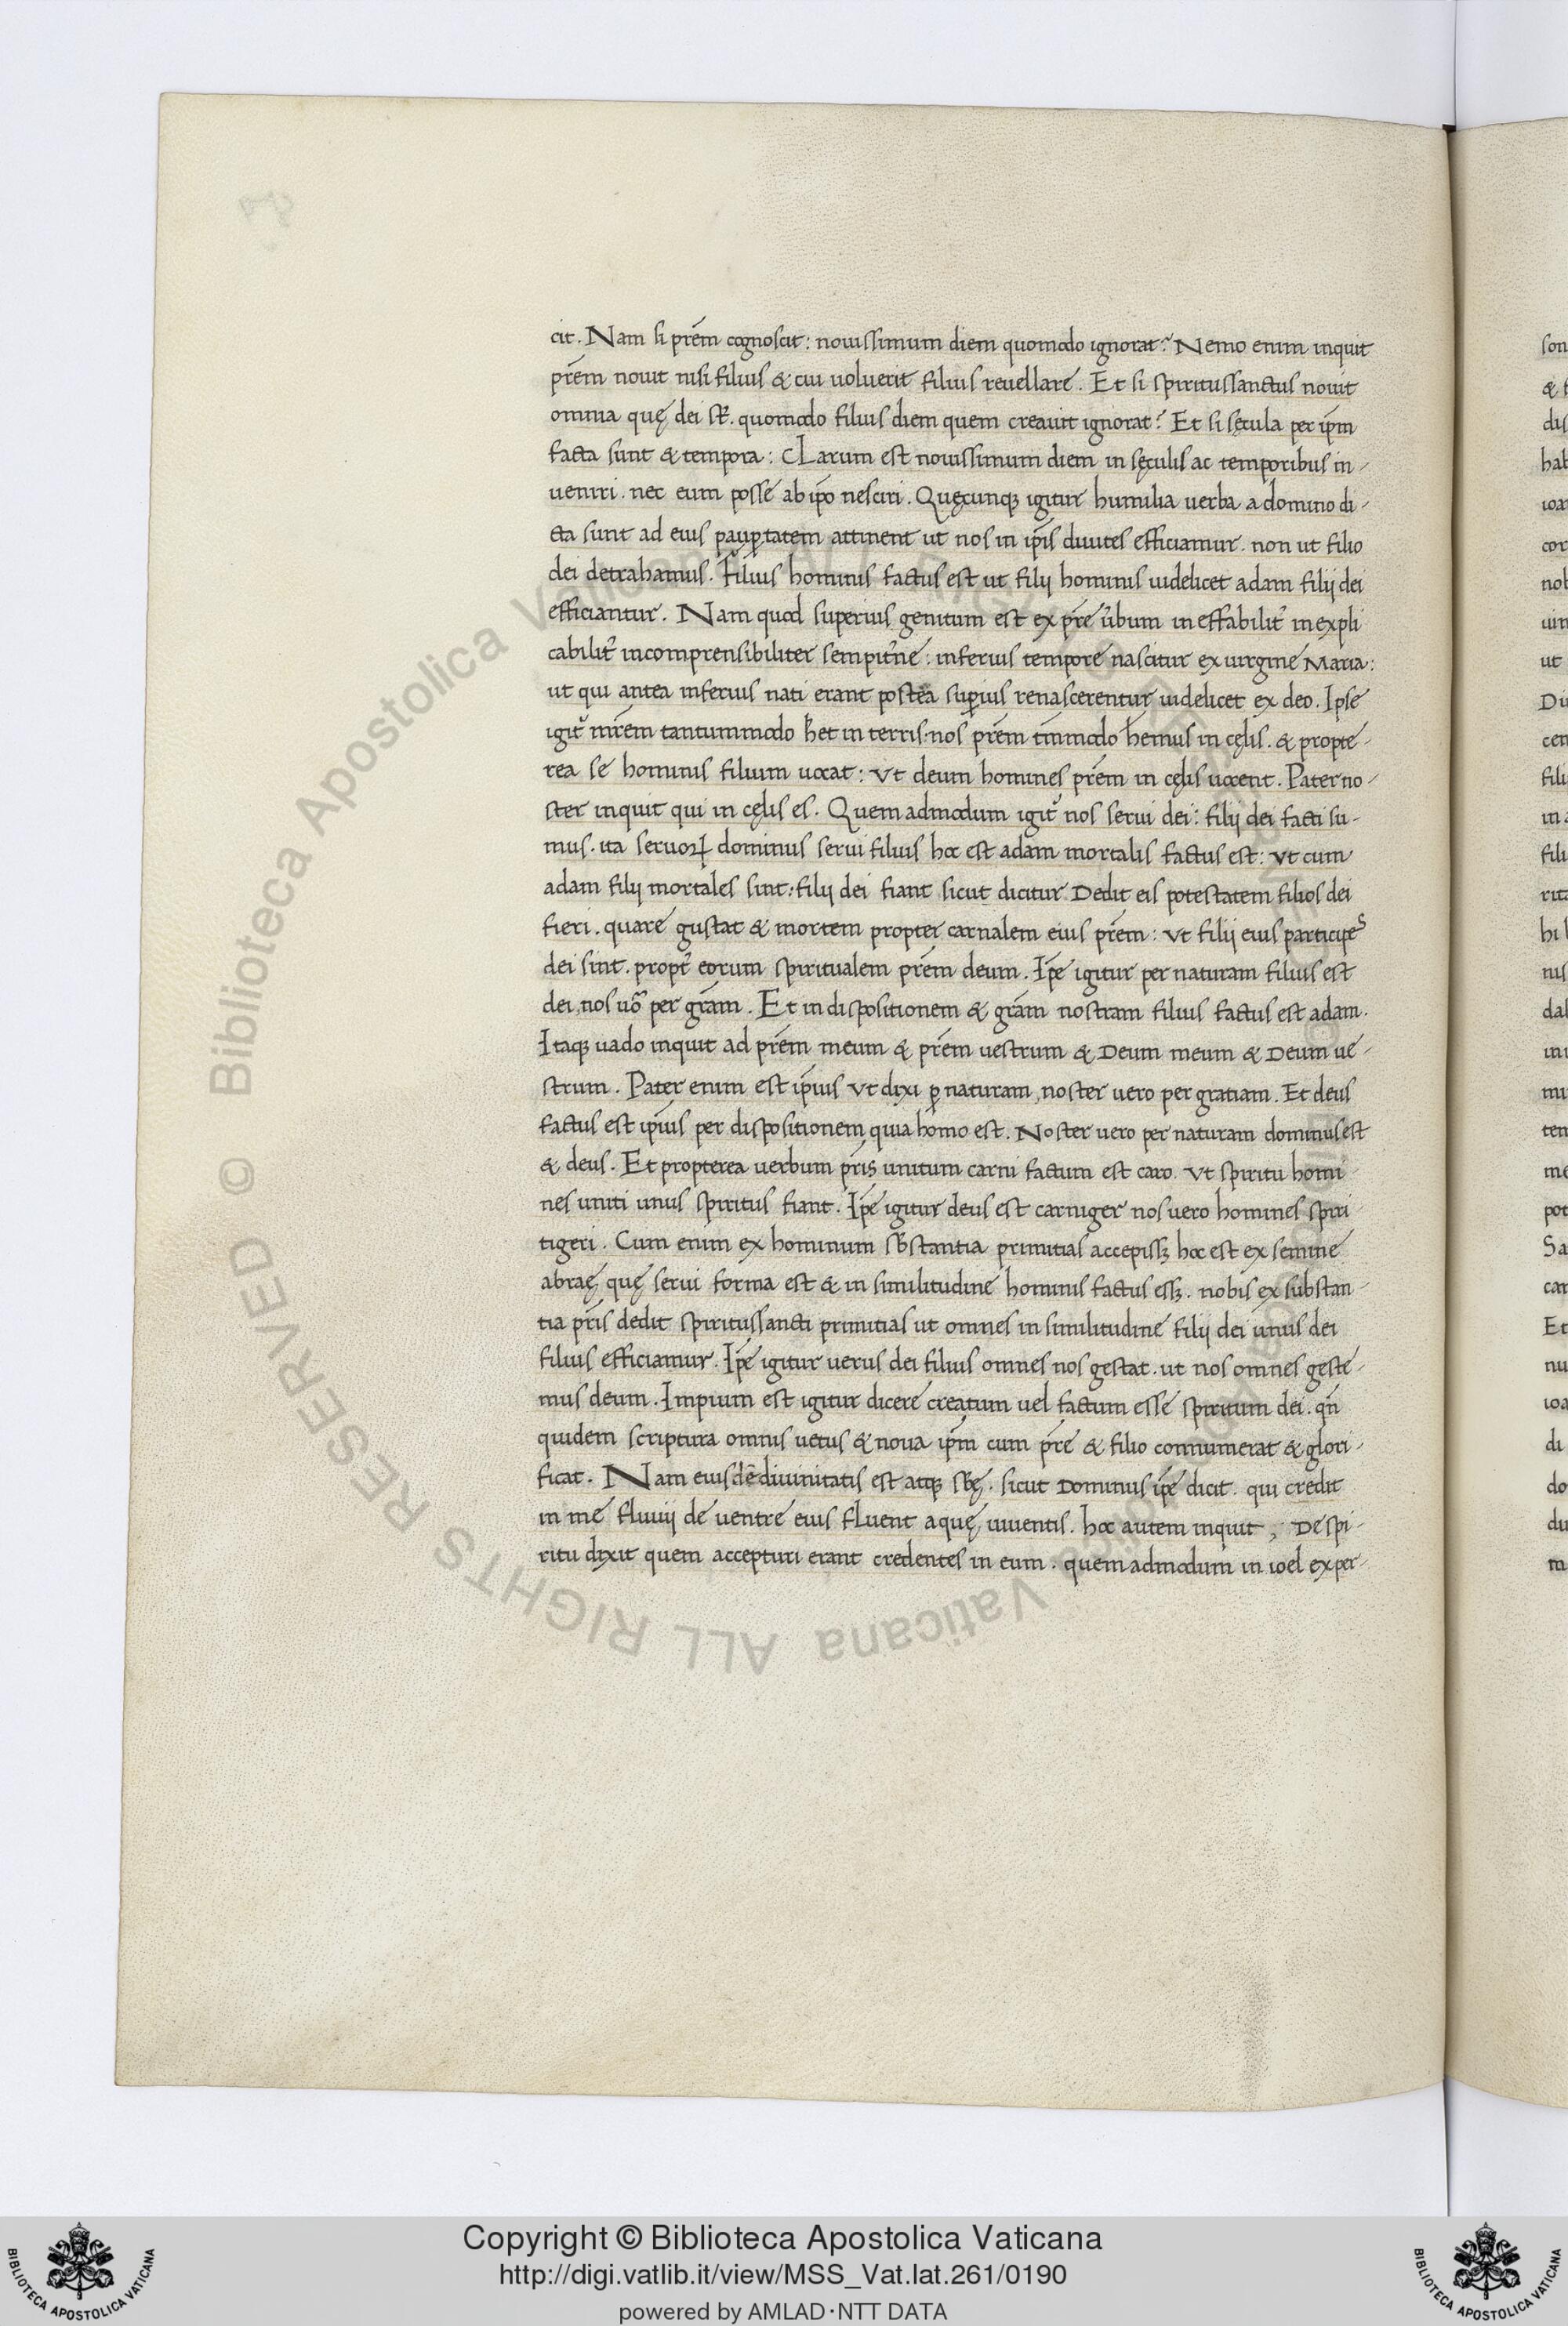 cit. Nam si prēm cognoscit: nouissimum diem quomodo ignorat? Nemo enim inquit
prēm nouit nisi filius & cui uoluerit filius reuellare. Et si spiritussanctus nouit
omnia quę dei st̄. quomodo filius diem quem creauit ignorat? Et si sęcula per ip̄m
facta sunt & tempora: CLarum est nouissimum diem in sęculis ac temporibus in-
ueniri. nec eum posse ab ip̄o nesciri. Quęcunqꝫ igitur humilia uerba a domino di-
cta sunt ad eius pauꝑtatem attinent ut nos in ip̄is diuites efficiamur. non ut filio
dei detrahamus. Filius hominis factus est ut filij hominis uidelicet adam filij dei
efficiantur. Nam quod superius genitum est ex prē ūbum ineffabilit̄ inexpli
cabilit̄ incomprensibiliter sempit̄ne: inferius tempore nascitur ex uirgine Maria:
ut qui antea inferius nati erant postea suꝑius renascerentur uidelicet ex deo. Ipse
igit̄ mrēm tantummodo ħet in terris: nos prēm tm̄modo ħemus in cęlis. & propte-
rea se hominis filium uocat: Vt deum homines prēm in cęlis uocent. Pater no-
ster inquit qui in cęlis es. Quemadmodum igit̄ nos serui dei: filij dei facti su-
mus. ita seruoꝝ dominus serui filius hoc est adam mortalis factus est: Vt cum
adam filij mortales sint: filij dei fiant sicut dicitur Dedit eis potestatem filios dei
fieri. quare gustat & mortem propter carnalem eius prēm: Vt filij eius participes
dei sint. propt̄ eorum spiritualem prēm deum. Ip̄e igitur per naturam filius est
dei, nos uō per grām. Et in dispositionem & grām nostram filius factus est adam.
Itaqꝫ uado inquit ad prēm meum & prēm uestrum & Deum meum & Deum ue-
strum. Pater enim est ip̄ius Vt dixi ꝑ naturam, noster uero per gratiam. Et deus
factus est ip̄ius per dispositionem quia homo est. Noster uero per naturam dominus est
& deus. Et propterea uerbum pr̄is unitum carni factum est caro. Vt spiritu homi
nes uniti unus spiritus fiant. Ip̄e igitur deus est carniger nos uero homines spiri-
tigeri. Cum enim ex hominum sƀstantia primitias accepissꝫ hoc est ex semine
abraę quę serui forma est & in similitudine hominis factus essꝫ. nobis ex substan-
tia pr̄is dedit spiritussancti primitias ut omnes in similitudine filij dei unus dei
filius efficiamur. Ip̄e igitur uerus dei filius omnes nos gestat. ut nos omnes geste-
mus deum. Impium est igitur dicere creatum uel factum esse spiritum dei. qn̄
quidem scriptura omnis uetus & noua ip̄m cum prē & filio connumerat & glori-
ficat. Nam eiusdē diuinitatis est atqꝫ sƀę. sicut Dominus ip̄e dicit. qui credit
in me fluuij de uentre eius fLuent aquę uiuentis. hoc autem inquit, De spi-
ritu dixit quem accepturi erant credentes in eum. quemadmodum in ioel ex per-
Copyright © Biblioteca Apostolica Vaticana
http://digi.vatlib.it/view/MSS_Vat.lat.261/0190
powered by AMLAD·NTT DATA